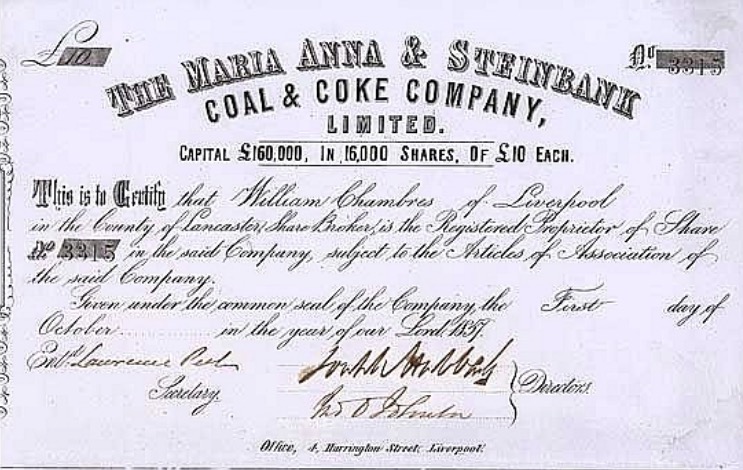 £10
No 3315
THE MARIA ANNA & STEINBANK
COAL & COKE COMPANY,
LIMITED.
CAPITAL £160,000, IN 16,000 SHARES, OF £10 EACH.
This is to Certify that William Chambres of Liverpool
in the County of Lancaster, Share Broker, is the Registered Proprietor of Share
No 3315 in the said Company, subject to the Articles of Association of
the said Company.
Given under the common seal of the Company, the First day of
October in the year of our Lord 1857.
Entd. Lawrence
Secretary.
Directors.
Office, 4, Harrington Street, Liverpool.